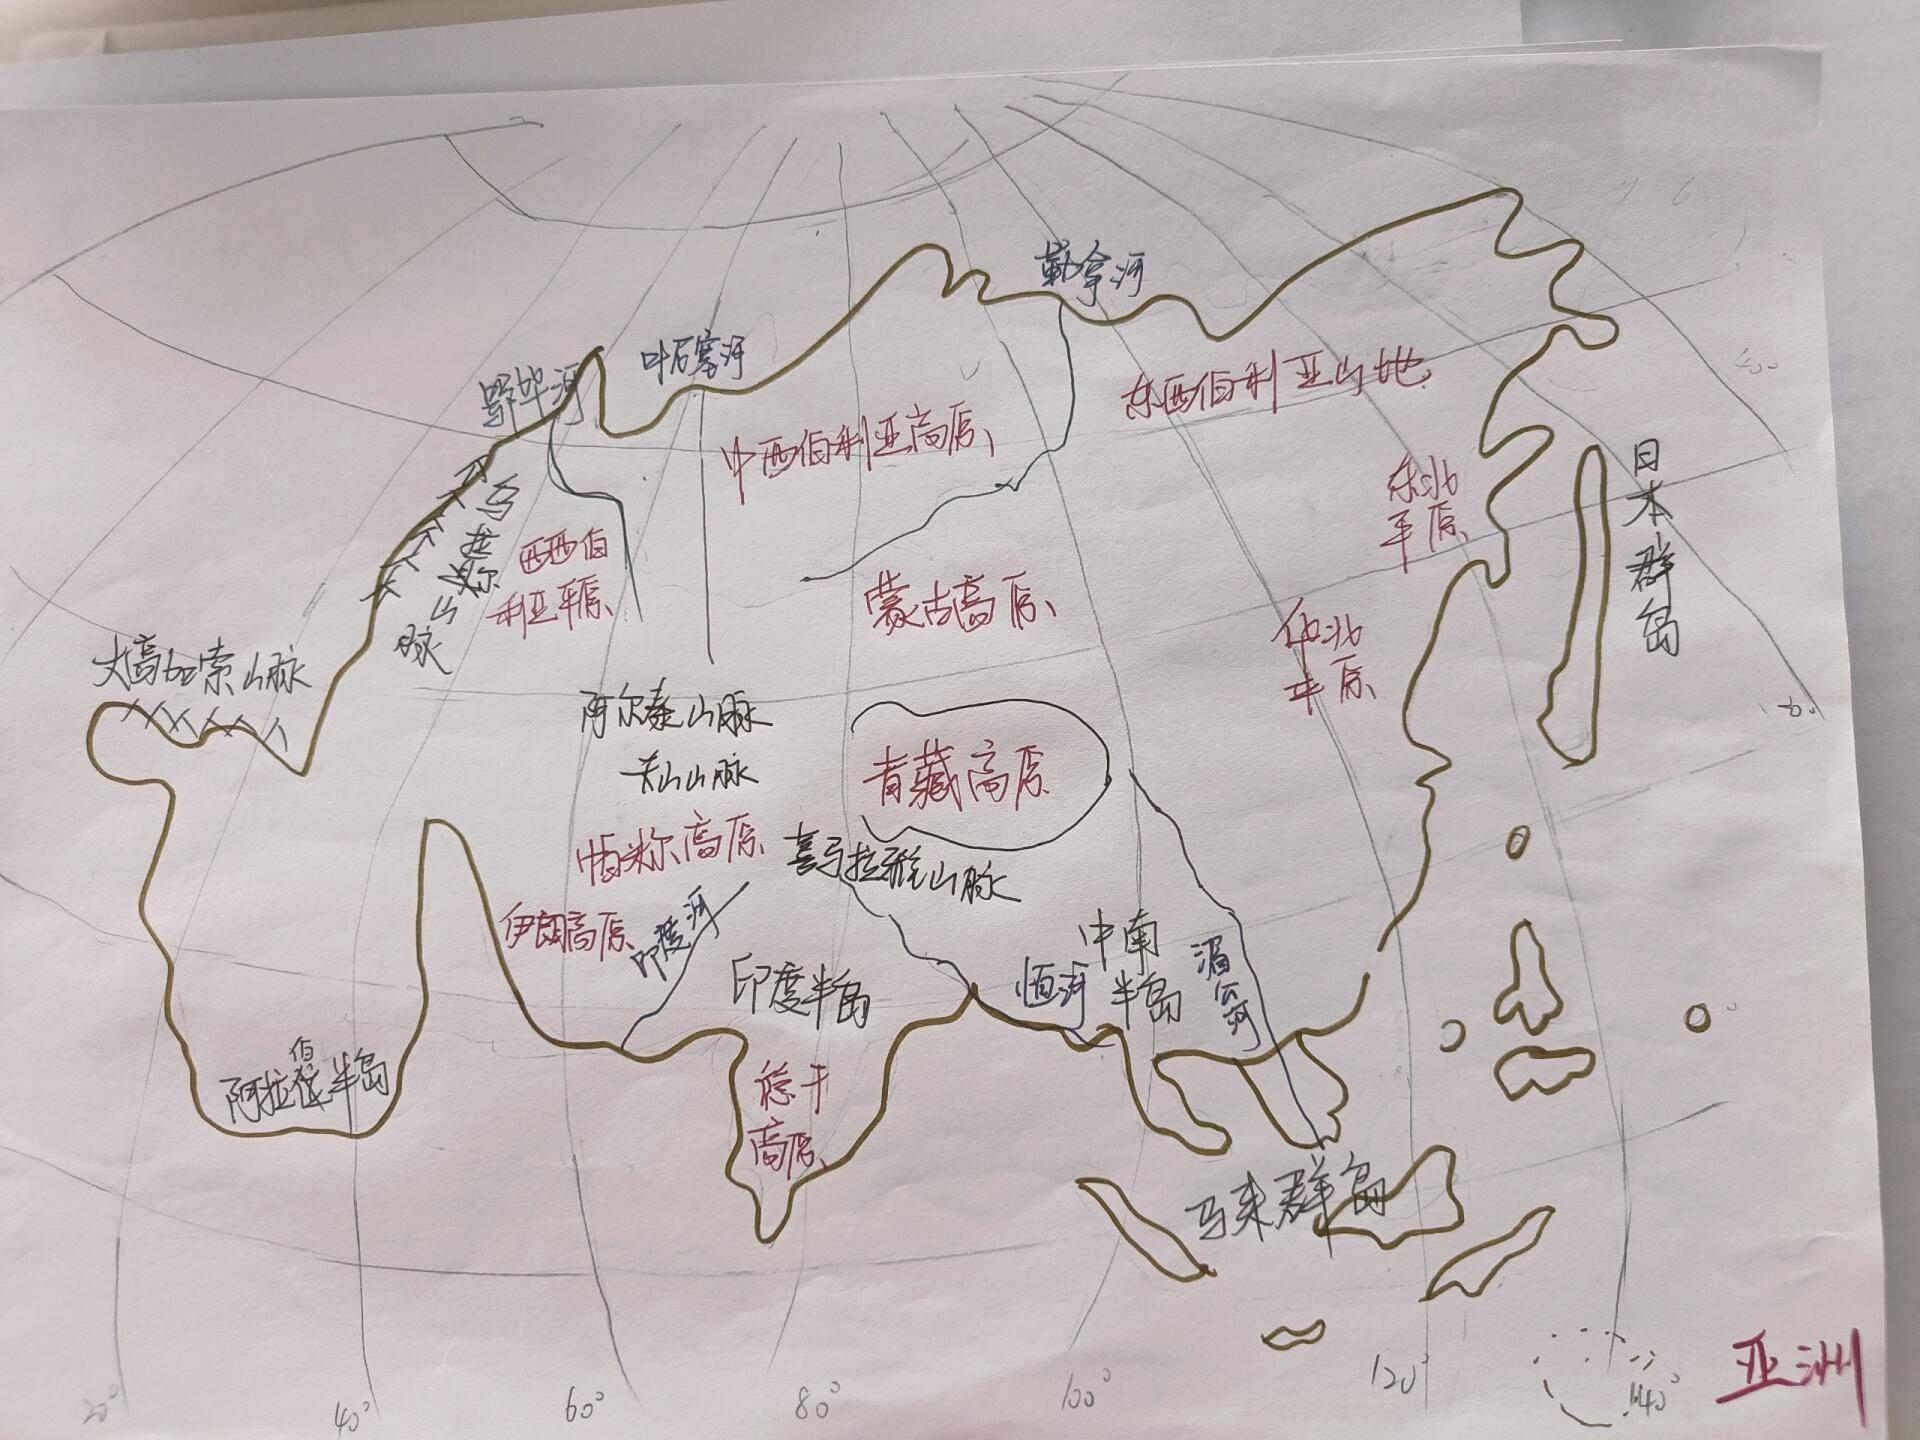 勒拿河
叶尼塞河
鄂毕河
东西伯利亚山地
中西伯利亚高原
日本群岛
东北
平原
乌拉尔山脉
西西伯
利亚平原
蒙古高原
华北
平原
大高加索山脉
阿尔泰山脉
天山山脉
青藏高原
帕米尔高原
喜马拉雅山脉
伊朗高原
印度河
中南
半岛
湄公河
恒河
印度半岛
伯
阿拉 半岛
德干
高原
马来群岛
亚洲
20°
40°
60°
80°
100°
120°
140°